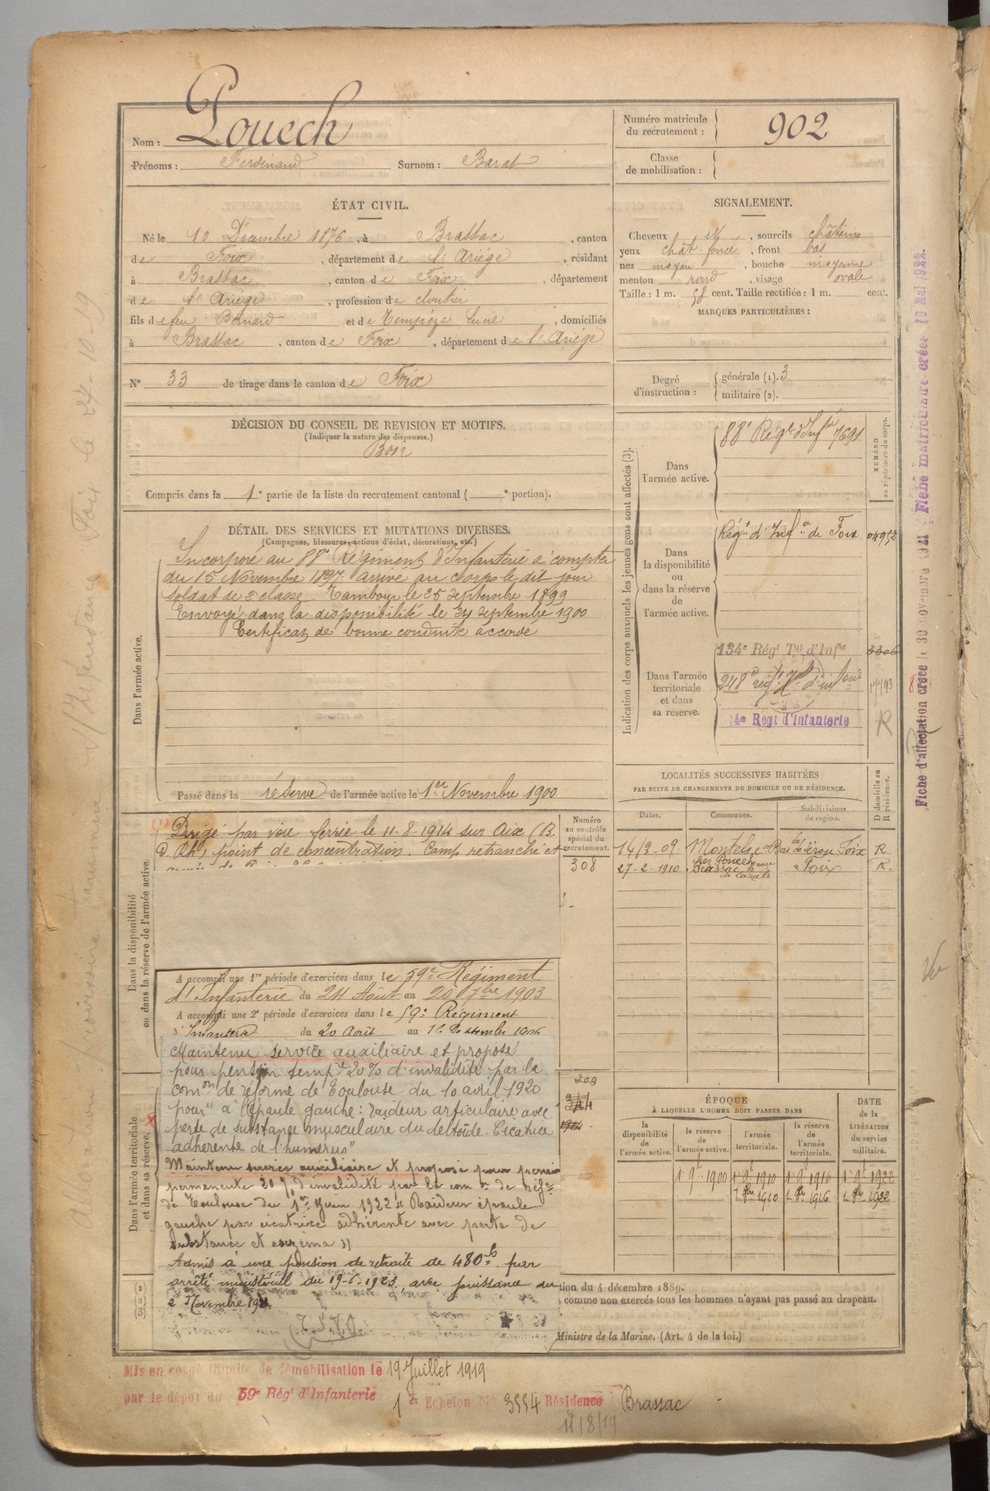 Nom : Pouech
Prénoms : Ferdinand Surnom : Barat
Numéro matricule du recrutement : 902
Classe de mobilisation :
ÉTAT CIVIL.
Né le 10 Décembre 1876, à Brassac, canton
de Foix, département de l'Ariège, résidant
à Brassac, canton de Foix, département
de l'Ariège, profession de cloutier
fils de feu Bernard et de Lucie, domiciliés
à Brassac, canton de Foix, département de l'Ariège
N° 33 de tirage dans le canton de Foix
SIGNALEMENT.
Cheveux , sourcils châtains
yeux chât foncé, front bas
nez moyen, bouche moyenne
menton rond, visage ovale
Taille : 1 m. 58 cent. Taille rectifiée : 1 m. cent.
MARQUES PARTICULIÈRES :
Degré d'instruction : générale (1). 3
militaire (2).
DÉCISION DU CONSEIL DE REVISION ET MOTIFS.
(Indiquer la nature des dispenses.)
Bon
Compris dans la 1e partie de la liste du recrutement cantonal ( e portion).
DÉTAIL DES SERVICES ET MUTATIONS DIVERSES.
(Campagnes, blessures, actions d'éclat, décorations, etc.)
Dans l'armée active.
Incorporé au 88e Régiment d'Infanterie à compter
du 15 Novembre 1897 arrivé au corps le dit jour
soldat de 2e classe. Tambour le 25 septembre 1899
Envoyé dans la disponibilité le septembre 1900
Certificat de bonne conduite accordé
Passé dans la réserve de l'armée active le 1er Novembre 1900
Indication des corps auxquels les jeunes gens sont affectés (3).
NUMÉRO au répertoire du corps.
Dans l'armée active.
88e Régt d'Infie 7691
Dans la disponibilité ou dans la réserve de l'armée active.
Régt d'Infie de Foix
Dans l'armée territoriale et dans sa réserve.
134e Régt Tal d'Infie
d'infanterie
R
Régt d'Infanterie
LOCALITÉS SUCCESSIVES HABITÉES
PAR SUITE DE CHANGEMENTS DE DOMICILE OU DE RÉSIDENCE.
Dates. Communes. Subdivisions de région. D domicile ou R résidence.
Foix R
27-2-1910 Brassac Foix R.
Dans la disponibilité ou dans la réserve de l'armée active.
Numéro au contrôle spécial du recrutement.
308
Dirigé par voie ferrée le 11-8-1914 sur Aix (B.
d. Rh) point de concentration. Camp retranché et
A accompli une 1re période d'exercices dans le 59e Régiment
d'Infanterie du 24 Août au 20 7bre 1903
A accompli une 2e période d'exercices dans le 59e Régiment
d'Infanterie du 20 Août au
Dans l'armée territoriale et dans sa réserve.
Maintenu service auxiliaire et proposé
pour pension tempre 20% d'invalidité par la
comon de réforme de Toulouse du 10 avril 1920
pour "à l'épaule gauche : raideur articulaire avec
perte de substance musculaire du deltoïde. Cicatrice
adhérente de l'humérus"
Maintenu service auxiliaire et proposé pour pension
permanente 20% d'invalidité par la com on de réfme
de Toulouse du 1er Juin 1922 " Raideur épaule
gauche par cicatrice adhérente avec perte de
substance et eczéma "
Admis à une pension de retraite de 480f par
arrêté ministériel du 19-6-1923 avec jouissance du
2 Novembre
ÉPOQUE
À LAQUELLE L'HOMME DOIT PASSER DANS
la disponibilité de l'armée active. la réserve de l'armée active. l'armée territoriale. la réserve de l'armée territoriale.
DATE de la LIBÉRATION du service militaire.
1er 9bre 1900 1er 9bre 1910 1er 9bre 1916 1er 9bre 1922
1910 1916 1922
tion du 4 décembre 1889.
comme non exercés tous les hommes n'ayant pas passé au drapeau.
Ministre de la Marine. (Art. 4 de la loi.)
Mis en congé illimité de démobilisation le 19 Juillet 1919
par le dépôt du 59e Régt d'Infanterie
Echelon No 3554 Résidence Brassac
Fiche d'affectation créée le 30 novembre 1921 ; Fiche matriculaire créée 10 Mai 1922.